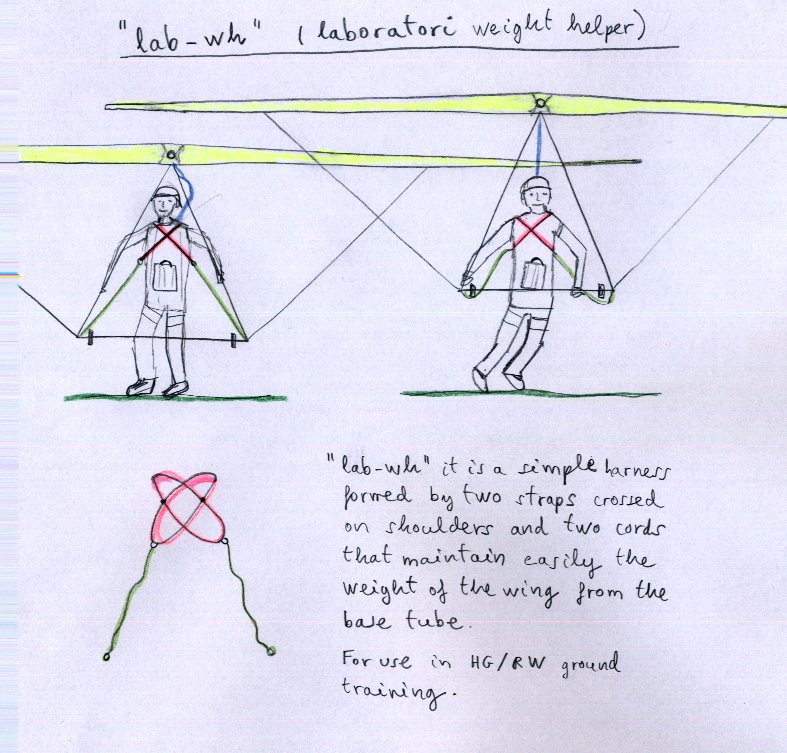 "lab-wh" (laboratori weight helper)
"lab-wh" it is a simple harness
formed by two straps crossed
on shoulders and two cords
that maintain easily the
weight of the wing from the
base tube.
For use in HG/RW ground
training.